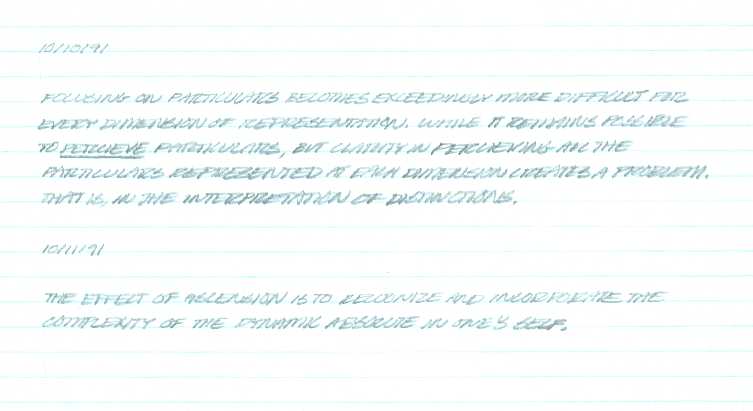 10/10/91
FOCUSING ON PARTICULARS BECOMES EXCEEDINGLY MORE DIFFICULT FOR
EVERY DIMENSION OF REPRESENTATION. WHILE IT REMAINS POSSIBLE
TO PERCIEVE PARTICULARS, BUT CLARITY IN PERCIEVING ALL THE
PARTICULARS REPRESENTED AT EACH DIMENSION CREATES A PROBLEM.
THAT IS, IN THE INTERPRETATION OF DISTINCTIONS.
10/11/91
THE EFFECT OF ASCENSION IS TO RECOGNIZE AND INCORPORATE THE
COMPLEXITY OF THE DYNAMIC ABSOLUTE IN ONE'S SELF.